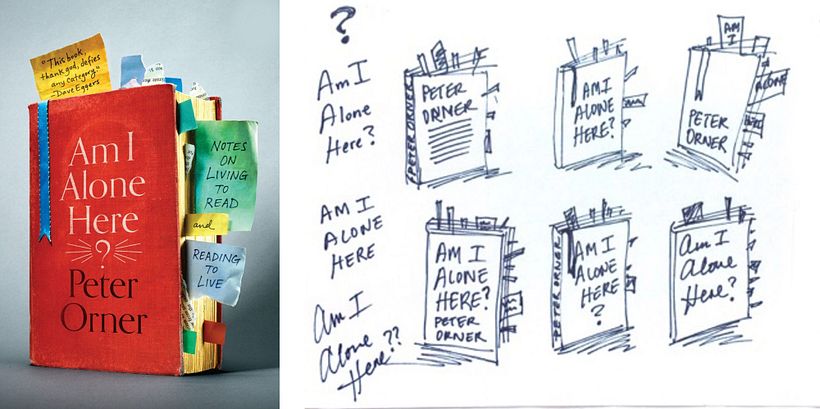 "This book,
thank god, defies
any category."
-Dave Eggers
Am I
Alone
Here
?
Peter
Orner
NOTES
ON
LIVING
TO
READ
and
READING
TO
LIVE
?
Am I
Alone
Here?
AM I
ALONE
HERE
Am I
Alone
Here??
PETER ORNER
PETER
ORNER
AM I
ALONE
HERE?
AM
I
ALONE
PETER
ORNER
AM I
ALONE
HERE?
PETER
ORNER
PETER ORNER
AM I
ALONE
HERE
?
Am I
Alone
Here?